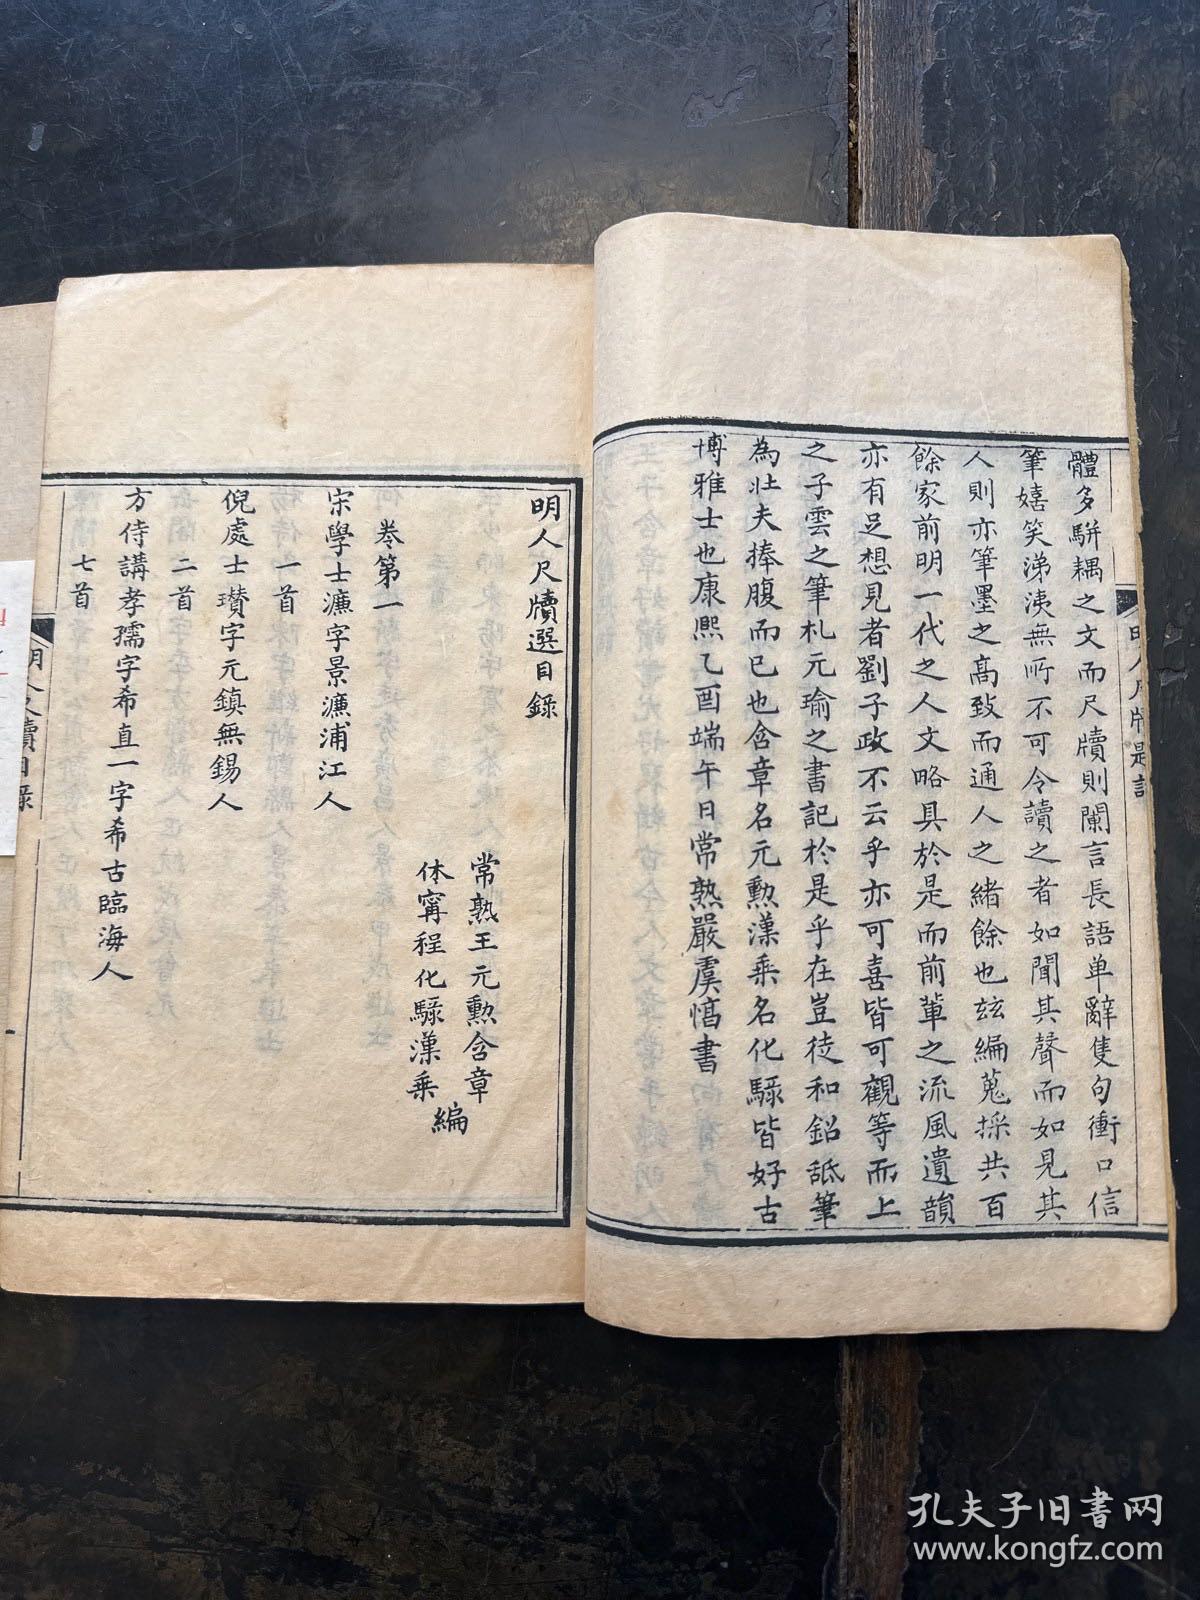 體多駢耦之文而尺牘則闌言長語单辭隻句衝口信
筆嬉笑涕洟無所不可令讀之者如聞其聲而如見其
人則亦筆墨之高致而通人之緒餘也玆編蒐採共百
餘家前明一代之人文略具於是而前軰之流風遺韻
亦有足想見者劉子政不云乎亦可喜皆可觀等而上
之子雲之筆札元瑜之書記於是乎在豈徒和鉛舐筆
為壯夫捧腹而已也含章名元勲漢乘名化騄皆好古
博雅士也康熙乙酉端午日常熟嚴虞惇書
明人尺牘題記
明人尺牘選目錄
常熟王元勲含章
休寧程化騄漢乘
編
卷第一
宋學士濂字景濂浦江人
一首
倪處士瓚字元鎮無錫人
二首
方侍講孝孺字希直一字希古臨海人
七首
明人尺牘目錄
孔夫子旧书网
www.kongfz.com